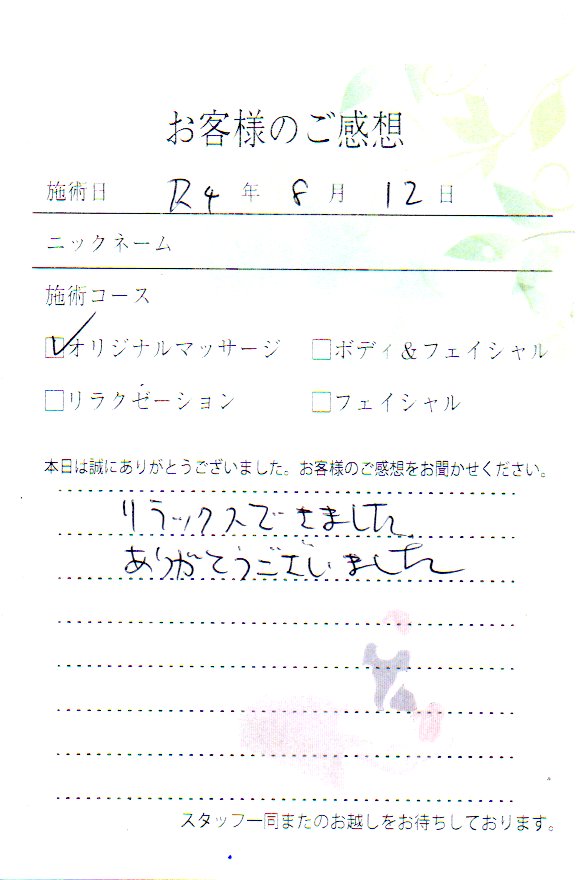 お客様のご感想
施術日 R4年 8月 12日
ニックネーム
施術コース
オリジナルマッサージ ボディ&フェイシャル
リラクゼーション フェイシャル
本日は誠にありがとうございました。お客様のご感想をお聞かせください。
リラックスできました
ありがとうございました
スタッフ一同またのお越しをお待ちしております。